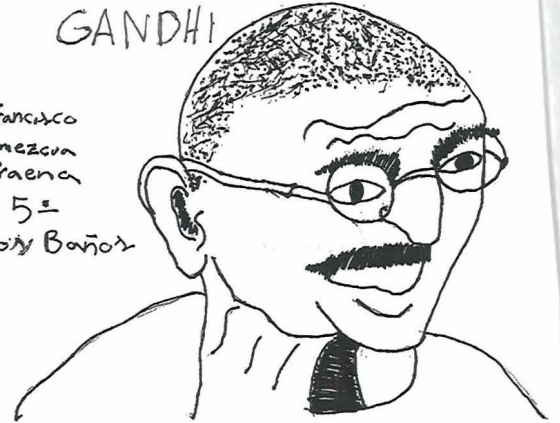 GANDHI
ancisco
mezcua
aena
5º
os Baños